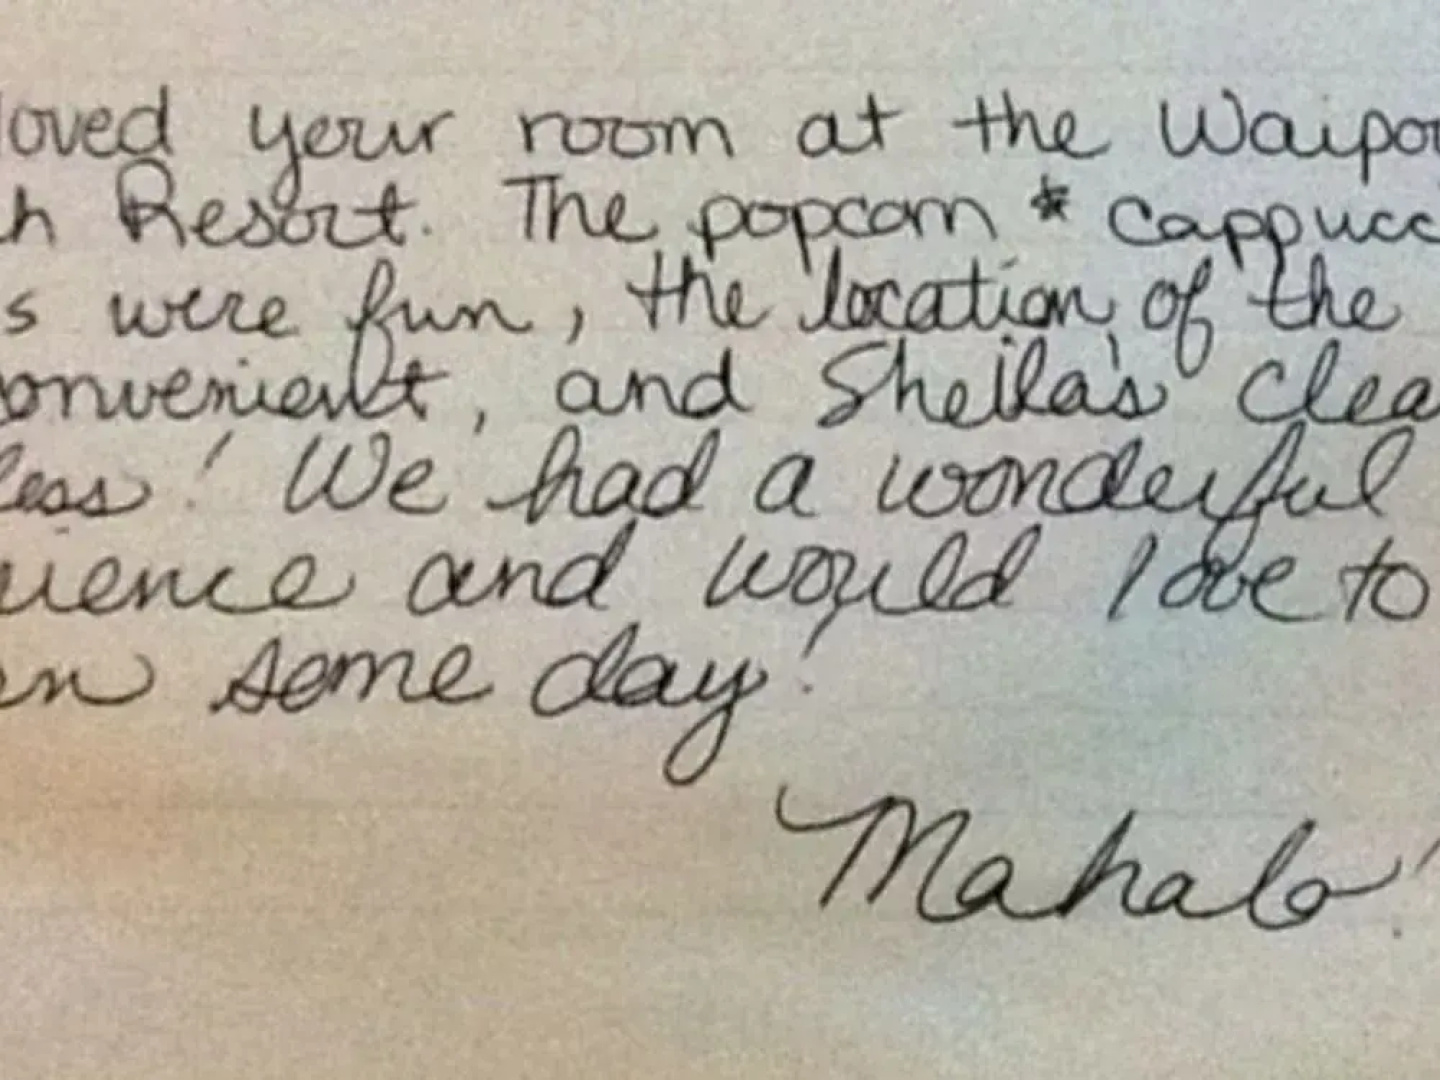 loved your room at the Waipou
ch Resort. The popcorn * cappucc
s were fun, the location of the
onvenient, and Sheila's clea
less! We had a wonderful
rience and would love to
en some day!
Mahalo!